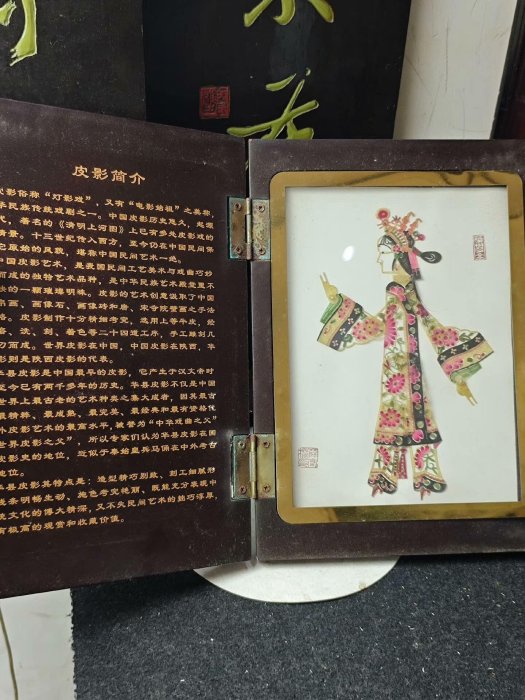 皮影简介
皮影俗称“灯影戏”，又有“电影始祖”之美称，
华民族传统戏剧之一。中国皮影历史悠久，起
代，著名的《清明上河图》上已有多处皮影戏的
情景。十三世纪传入西方，至今仍在中国民间
它原始的风貌，堪称中国民间艺术一绝。
中国皮影艺术，是我国民间工艺美术与戏曲巧妙
而成的独特艺术品种，是中华民族艺术殿堂里不
缺的一颗璀璨明珠。皮影的艺术创意汲取了中国
帛画、画像石、画像砖和唐、宋寺院壁画之手法
皮影制作十分精细考究，选用上等牛皮，经
洛、泼、刻、着色等二十四道工序，手工雕刻几
刀而成。世界皮影在中国，中国皮影在陕西，华
影则是陕西皮影的代表。
华县皮影是中国最早的皮影，它产生于汉文帝时
迄今已有两千多年的历史。华县皮影不仅是中国
世界上最古老的艺术种类之集大成者，因其最古
最精粹、最成熟、最完美、最经典和最有资格代
外皮影艺术的最高水平，被誉为“中华戏曲之父”
世界皮影之父”，所以专家们认为华县皮影在国
皮影史的地位，近似于秦始皇兵马俑在中外考古
地位。
华县皮影其特点是：造型精巧别致、刻工细腻形
线条明畅生动、施色考究艳丽、既能充分表现中
统文化的博大精深，又不失民间艺术的拙巧淳厚，
有极高的观赏和收藏价值。